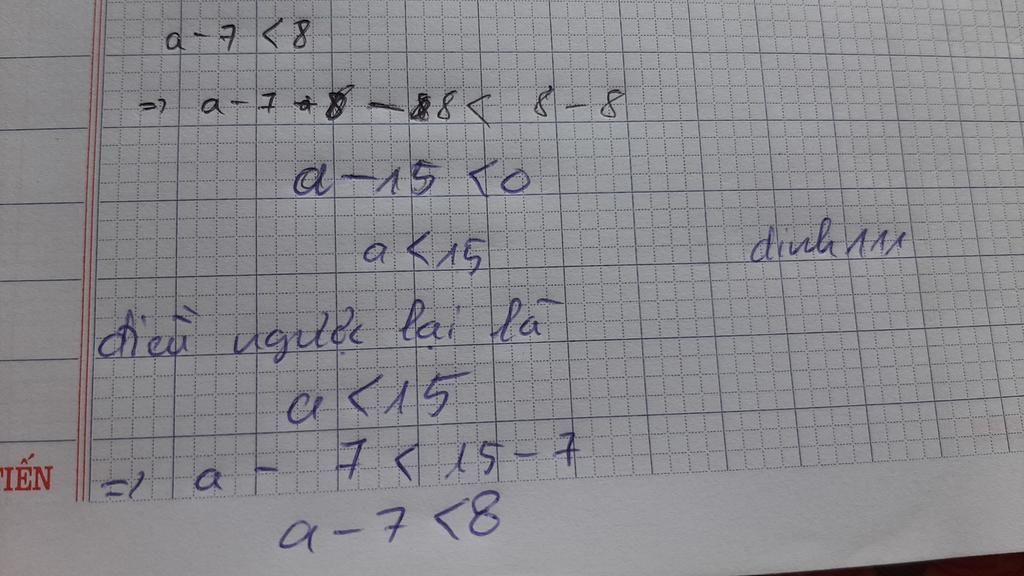 a - 7 < 8
=> a - 7 - 8 < 8 - 8
a - 15 < 0
a < 15
dinh 111
điều ngược lại là
a < 15
=> a - 7 < 15 - 7
TIẾN
a - 7 < 8